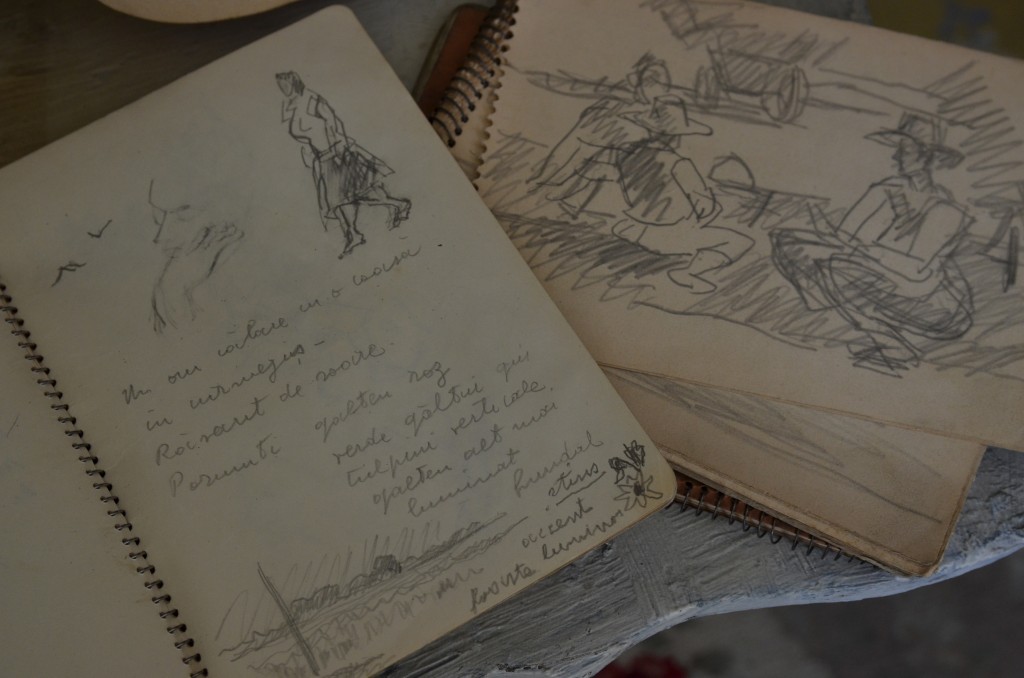 Un om călare cu o coasă
în mirmegiș –
Răsărit de soare.
Porumb galben roz
verde gălbui gri
tulpini verticale
galben alt mai
luminat
hundal
stins
accent
foarte luminos